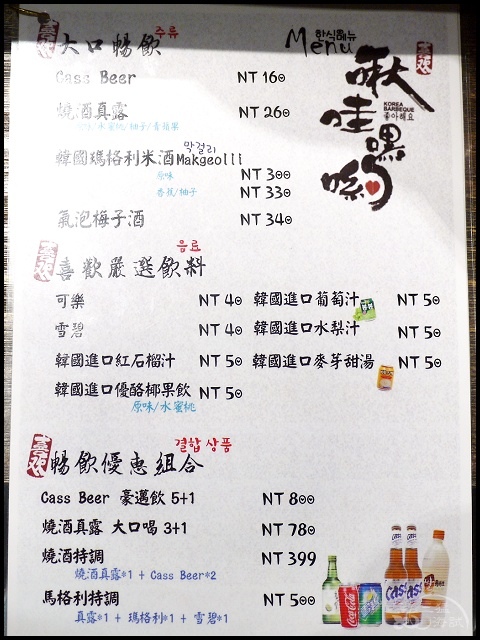 한식메뉴
Menu
啾哇嘿喲
KOREA
BARBEQUE
좋아해요
喜歡
喜歡
大口暢飲 주류
Cass Beer NT 160
燒酒真露 NT 260
/水蜜桃/柚子/青蘋果
막걸리
韓國瑪格利米酒Makgeolli
原味 NT 300
香蕉/柚子 NT 330
氣泡梅子酒 NT 340
喜歡
음료
喜歡嚴選飲料
可樂 NT 40 韓國進口葡萄汁 NT 50
雪碧 NT 40 韓國進口水梨汁 NT 50
韓國進口紅石榴汁 NT 50 韓國進口麥芽甜湯 NT 50
韓國進口優酪椰果飲 NT 50
原味/水蜜桃
喜歡
결합 상품
暢飲優惠組合
Cass Beer 豪邁飲 5+1 NT 800
燒酒真露 大口喝 3+1 NT 780
燒酒特調 NT 399
燒酒真露*1 + Cass Beer*2
馬格利特調 NT 500
真露*1 + 瑪格利*1 + 雪碧*1
Coca-Cola
Cass
Cass